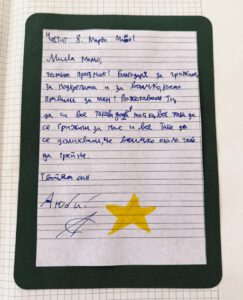 Честит 8. Март Мамо!
Мила Мамо,
честит празник! Благодаря за грижите,
за подкрепата и за всичко, което
правиш за мен! Пожелавам Ти,
да си все такава майка, все така да
се грижиш за нас и все така да
се усмихваш, че всичко около тебе
да грейне.
Твоят син